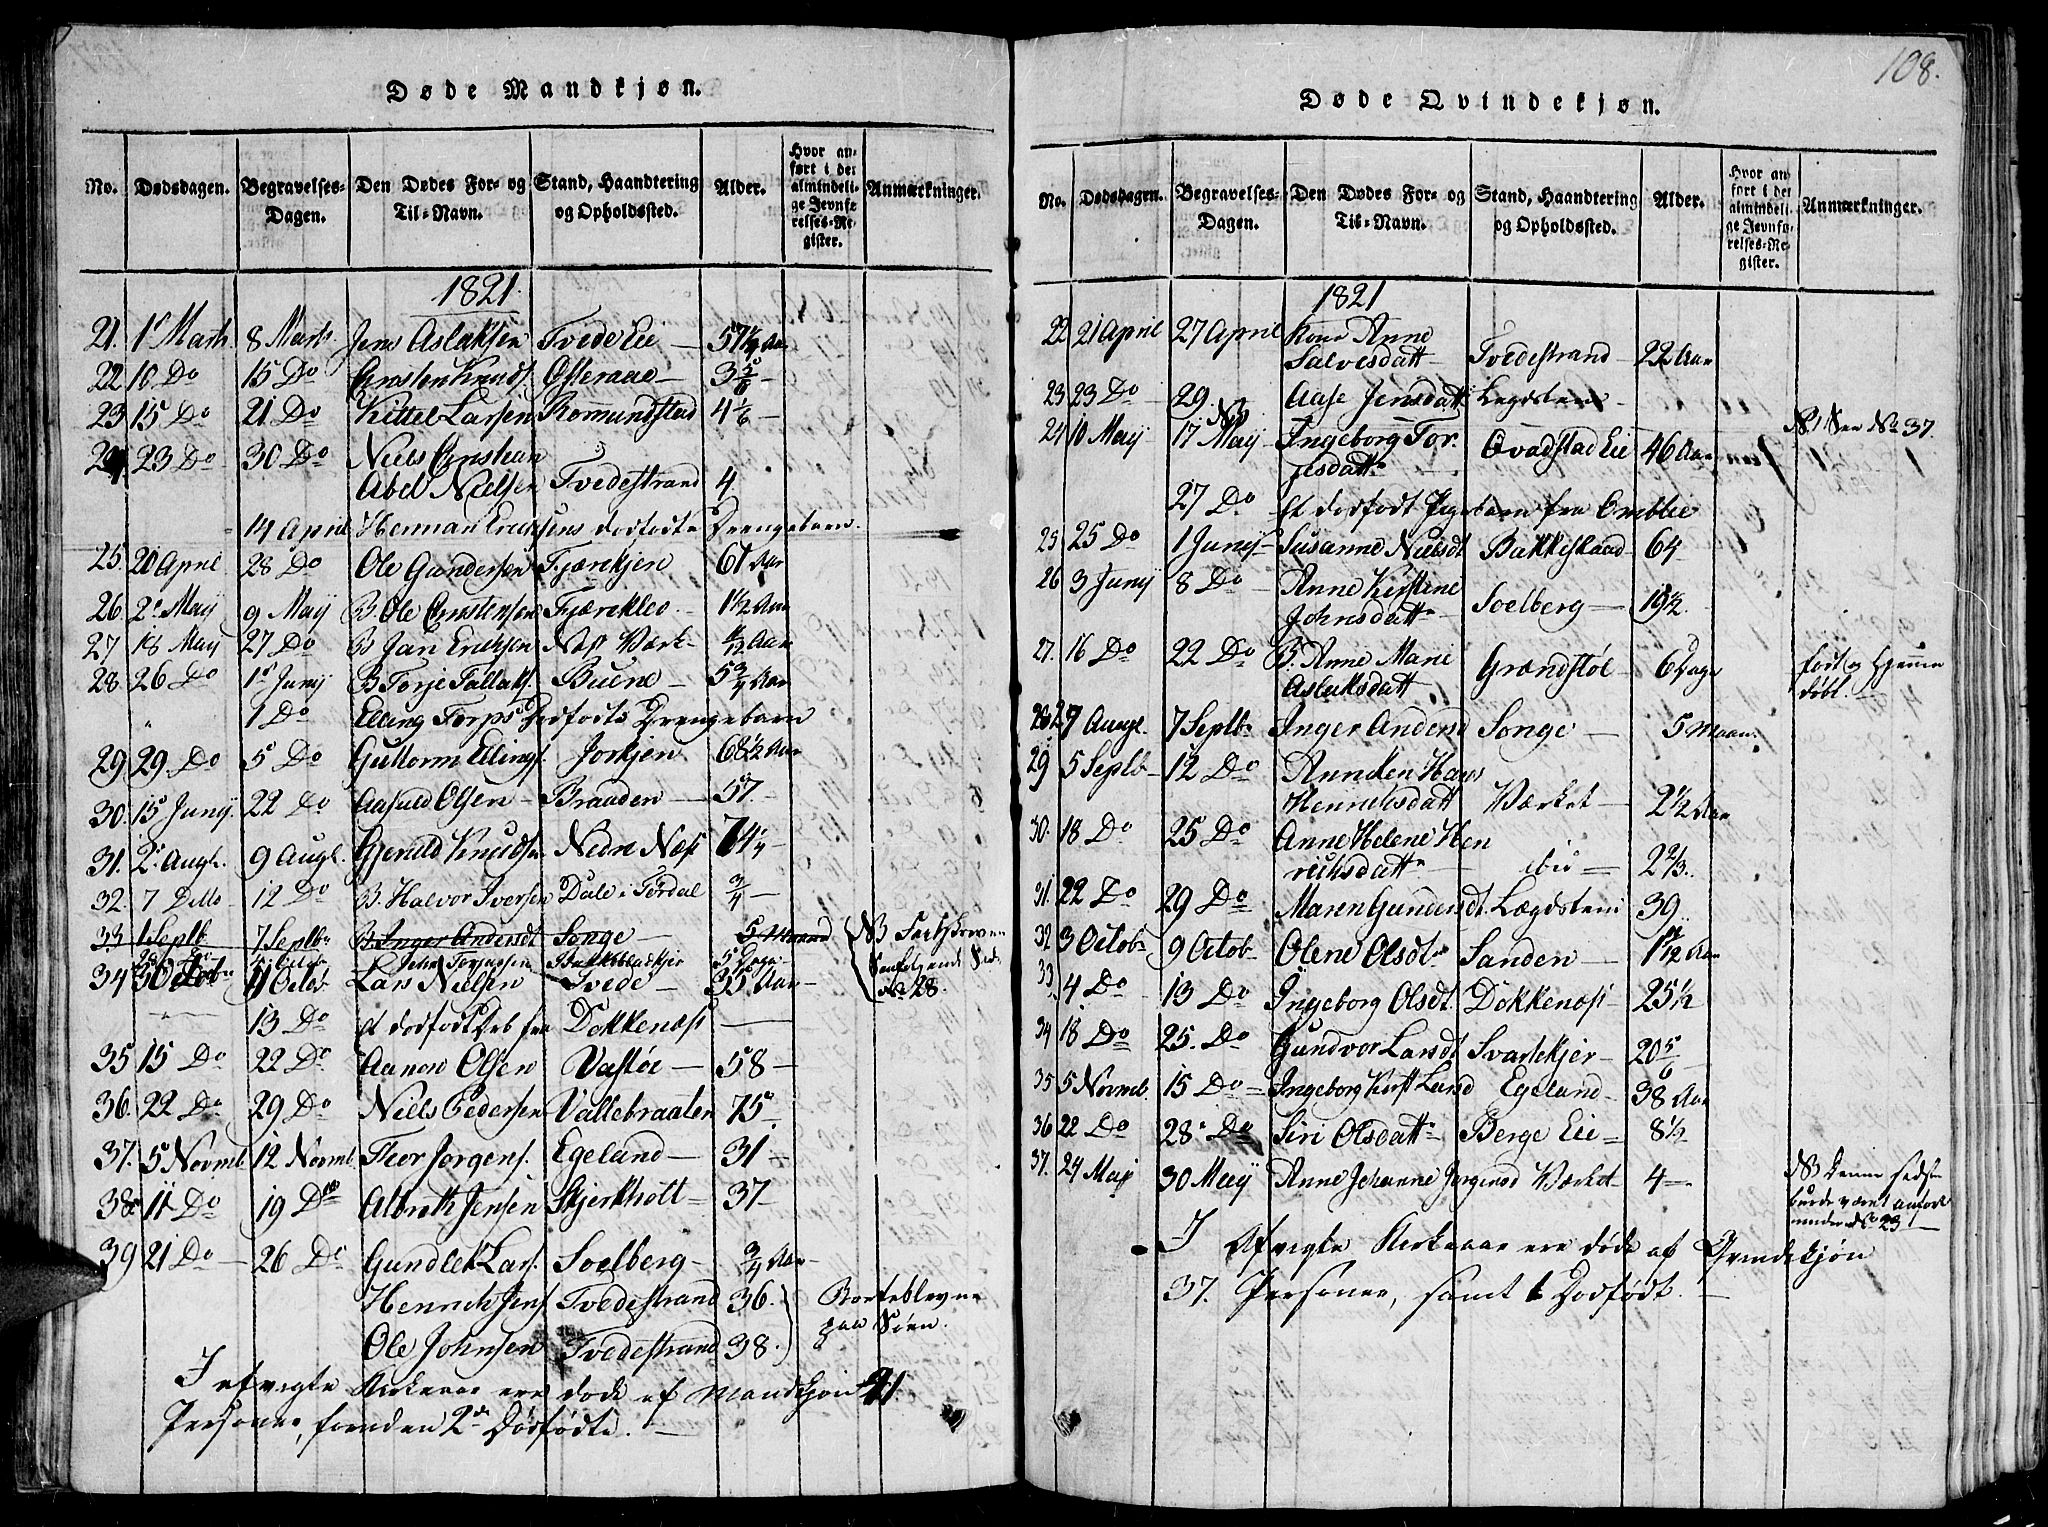 108.
Døde Mandkjøn.
No. Dødsdagen. Begravelses-Dagen. Den Dødes For- og Til-Navn. Stand, Haandtering og Opholdssted. Alder. Hvor anført i det almindelige Jevnførelses-Register. Anmærkninger.
1821.
21. 1' Marts 8 Marts Jens Aslaksen Tvede Eie 57½ Aar
22 10 Do 15 Do Knuds. Osteraae 3 5/6
23 15 Do 21 Do Kittel Larsen Romundstad 4 1/6
24 23 Do 30 Do Niels Christian
Abel Nielsen Tvedestrand 4
14 April Herman Ericksens dødfødte Drengebarn.
25. 20 April 28 Do Ole Gundersen Fjærekjen 67 Aar
26. 2' Maij 9 Maij B. Ole Fjærekleo 1½ Aar
27 18 Maij 27 Do B Jan Ericksen Næs Værk Aar
28 26 Do 1' Junij B Torje Tallaks. Buene 5¾ Aar
1 Do Elling Torps Dødfødte Drengebarn
29 29 Do 5 Do Guttorm Ellings. Jorkjen 68½ Aar
30. 15' Junij. 22 Do Aasuld Olsen Braaden 57.
31. 2' Augt. 9 Augt. Gjeruld Knudsen Nedre Næs 74¼
32. 7 Ditto 12 Do B. Halvor Iversen Dale i Tørdal ¾
33 1 Septb 7 Septbr B. Inger Andersdt Songe 5 Maaned NB
Jens Torgersen 5 Dage
34 3 Octob 11 Octob Lars Nielsen Tvede 35 Aar No 28.
13 Do et dødfødt fra Dokkenæs
35 15 Do 22 Do Aanon Olsen Vastøe 58
36. 22 Do 29 Do Niels Pedersen Vallebraaten 75
37. 5 Novmb. 12 Novmb. Feor Jørgens. Egeland 31
38 11 Do 19 Do Albrekt Jensen Skjerkholt 37
39 21 Do 26 Do Gundlek Lars. Soelberg ¾ Aar
Henrich Jens. Tvedestrand 36. Borteblevne
Ole Johnsen Tvedestrand 38. paa Søen.
I afvigte Kirkeaar ere døde af Mandkjøn 41
Personer, foruden 2de Dødfødte.
Døde Qvindekjøn.
No. Dødsdagen. Begravelses-Dagen. Den Dødes For- og Til-Navn. Stand, Haandtering og Opholdssted. Alder. Hvor anført i det almindelige Jevnførelses-Register. Anmærkninger.
1821
22 21 April 27 April Kone Anne
Salvesdatt Tvedestrand 22 Aar
23 23 Do 29 Aase Jensdatt Legdslem
24 10 Maij 17 Maij NB Ingeborg Tor-
jesdatt Qvadstad Eie 46 Aar NB See No 37.
27 Do Et dødfødt Pigebarn fra
25 25 Do 1 Junij Susanne Nielsdt Bakkeskaad 64
26 3 Junij 8 Do Anne Kirstene
Johnsdatt Soelberg 19½
27. 16 Do 22 Do B. Anne Marie
Aslaksdatt Grændstøl 6 Dage født og Hjemme døbt.
28 27 Augt. 7 Septb. Inger Anders Songe 5 Maan.
29 5 Septb 12 Do Anneken Hans
Henrichsdatt Værket 2½ Aar
30. 18 Do 25 Do Anne Helene Hen
richsdatt ibid 2⅔
31. 22 Do 29 Do Maren Gundersdt. Lægdslem 39
32 3 Octob 9 Octob Olene Olsdt Sanden 1½ Aar
33 4 Do 13 Do Ingeborg Olsdt. Dokkenæs 25½
34 18 Do 25. Do Gundvor Larsdt Svartekjer 20 5/6
35 5 Novmb. 15 Do Ingeborg Kirst Lund Egeland 38 Aar
36 22 Do 28 Do Siri Olsdatt Berge Eie 8½
37. 24 Maij 30 Maij Anne Johanne Jørgensd Værket 4 NB denne sidste
burde været anført
under No 23
I Afvigte Kirkeaar ere døde af Qvindekjøn
37. Personer, samt 1 Dødfødt.